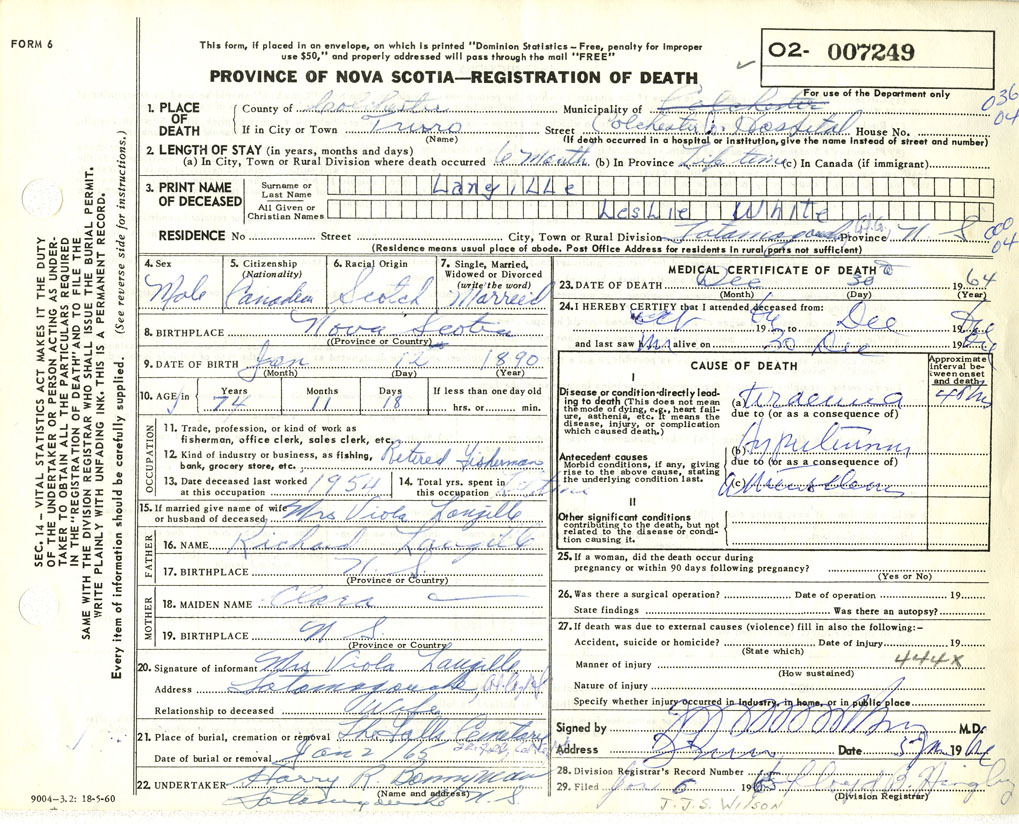 FORM 6
This form, if placed in an envelope, on which is printed "Dominion Statistics – Free, penalty for improper
use $50," and properly addressed will pass through the mail "FREE"
PROVINCE OF NOVA SCOTIA—REGISTRATION OF DEATH
O2- 007249
For use of the Department only
036
04
1. PLACE OF DEATH
County of Colchester Municipality of Colchester
If in City or Town Truro Street Colchester Co. Hospital House No.
(Name) (If death occurred in a hospital or institution, give the name instead of street and number)
2. LENGTH OF STAY (in years, months and days)
(a) In City, Town or Rural Division where death occurred 6 Month (b) In Province Life time (c) In Canada (if immigrant)
3. PRINT NAME OF DECEASED
Surname or Last Name Langille
All Given or Christian Names Leslie White
RESIDENCE No Street City, Town or Rural Division Tatamagouche Province N S
(Residence means usual place of abode. Post Office Address for residents in rural parts not sufficient)
04
4. Sex Male
5. Citizenship (Nationality) Canadian
6. Racial Origin Scotch
7. Single, Married, Widowed or Divorced (write the word) Married
8. BIRTHPLACE Nova Scotia
(Province or Country)
9. DATE OF BIRTH Jan 12 1890
(Month) (Day) (Year)
10. AGE in Years 74 Months 11 Days 18 If less than one day old hrs. or min.
OCCUPATION
11. Trade, profession, or kind of work as fisherman, office clerk, sales clerk, etc.
12. Kind of industry or business, as fishing, bank, grocery store, etc. Retired Fisherman
13. Date deceased last worked at this occupation 1954
14. Total yrs. spent in this occupation
15. If married give name of wife or husband of deceased Mrs Viola Langille
FATHER
16. NAME Richard Langille
17. BIRTHPLACE N S
(Province or Country)
MOTHER
18. MAIDEN NAME Clara
19. BIRTHPLACE N S
(Province or Country)
20. Signature of informant Mrs Viola Langille
Address Tatamagouche
Relationship to deceased Wife
21. Place of burial, cremation or removal The Falls Cemetary
Date of burial or removal Jan 2 65
22. UNDERTAKER Harry R. Bonnyman
(Name and address)
Tatamagouche N. S
9004–3.2: 18-5-60
MEDICAL CERTIFICATE OF DEATH
23. DATE OF DEATH Dec 30 1964
(Month) (Day) (Year)
24. I HEREBY CERTIFY that I attended deceased from:
19 to Dec 19
and last saw alive on 30 Dec 19
CAUSE OF DEATH
Approximate interval between onset and death
I
Disease or condition directly leading to death (This does not mean the mode of dying, e.g., heart failure, asthenia, etc. It means the disease, injury, or complication which caused death.)
(a) Uraemia
due to (or as a consequence of)
Antecedent causes
Morbid conditions, if any, giving rise to the above cause, stating the underlying condition last.
(b)
due to (or as a consequence of)
(c)
II
Other significant conditions
contributing to the death, but not related to the disease or condition causing it.
25. If a woman, did the death occur during
pregnancy or within 90 days following pregnancy?
(Yes or No)
26. Was there a surgical operation? Date of operation 19
State findings Was there an autopsy?
27. If death was due to external causes (violence) fill in also the following:–
Accident, suicide or homicide? Date of injury 19
(State which)
444x
Manner of injury
(How sustained)
Nature of injury
Specify whether injury occurred in industry, in home, or in public place
Signed by M.D.
Address Truro Date 5 Jan 19
28. Division Registrar's Record Number
29. Filed Jan 6 1965 Lloyd B Hingley
(Division Registrar)
J.J.S. WILSON
SEC. 14 – VITAL STATISTICS ACT MAKES IT THE DUTY
OF THE UNDERTAKER OR PERSON ACTING AS UNDER-
TAKER TO OBTAIN ALL THE PARTICULARS REQUIRED
IN THE "REGISTRATION OF DEATH" AND TO FILE THE
SAME WITH THE DIVISION REGISTRAR WHO SHALL ISSUE THE BURIAL PERMIT.
WRITE PLAINLY WITH UNFADING INK. THIS IS A PERMANENT RECORD.
Every item of information should be carefully supplied. (See reverse side for instructions.)